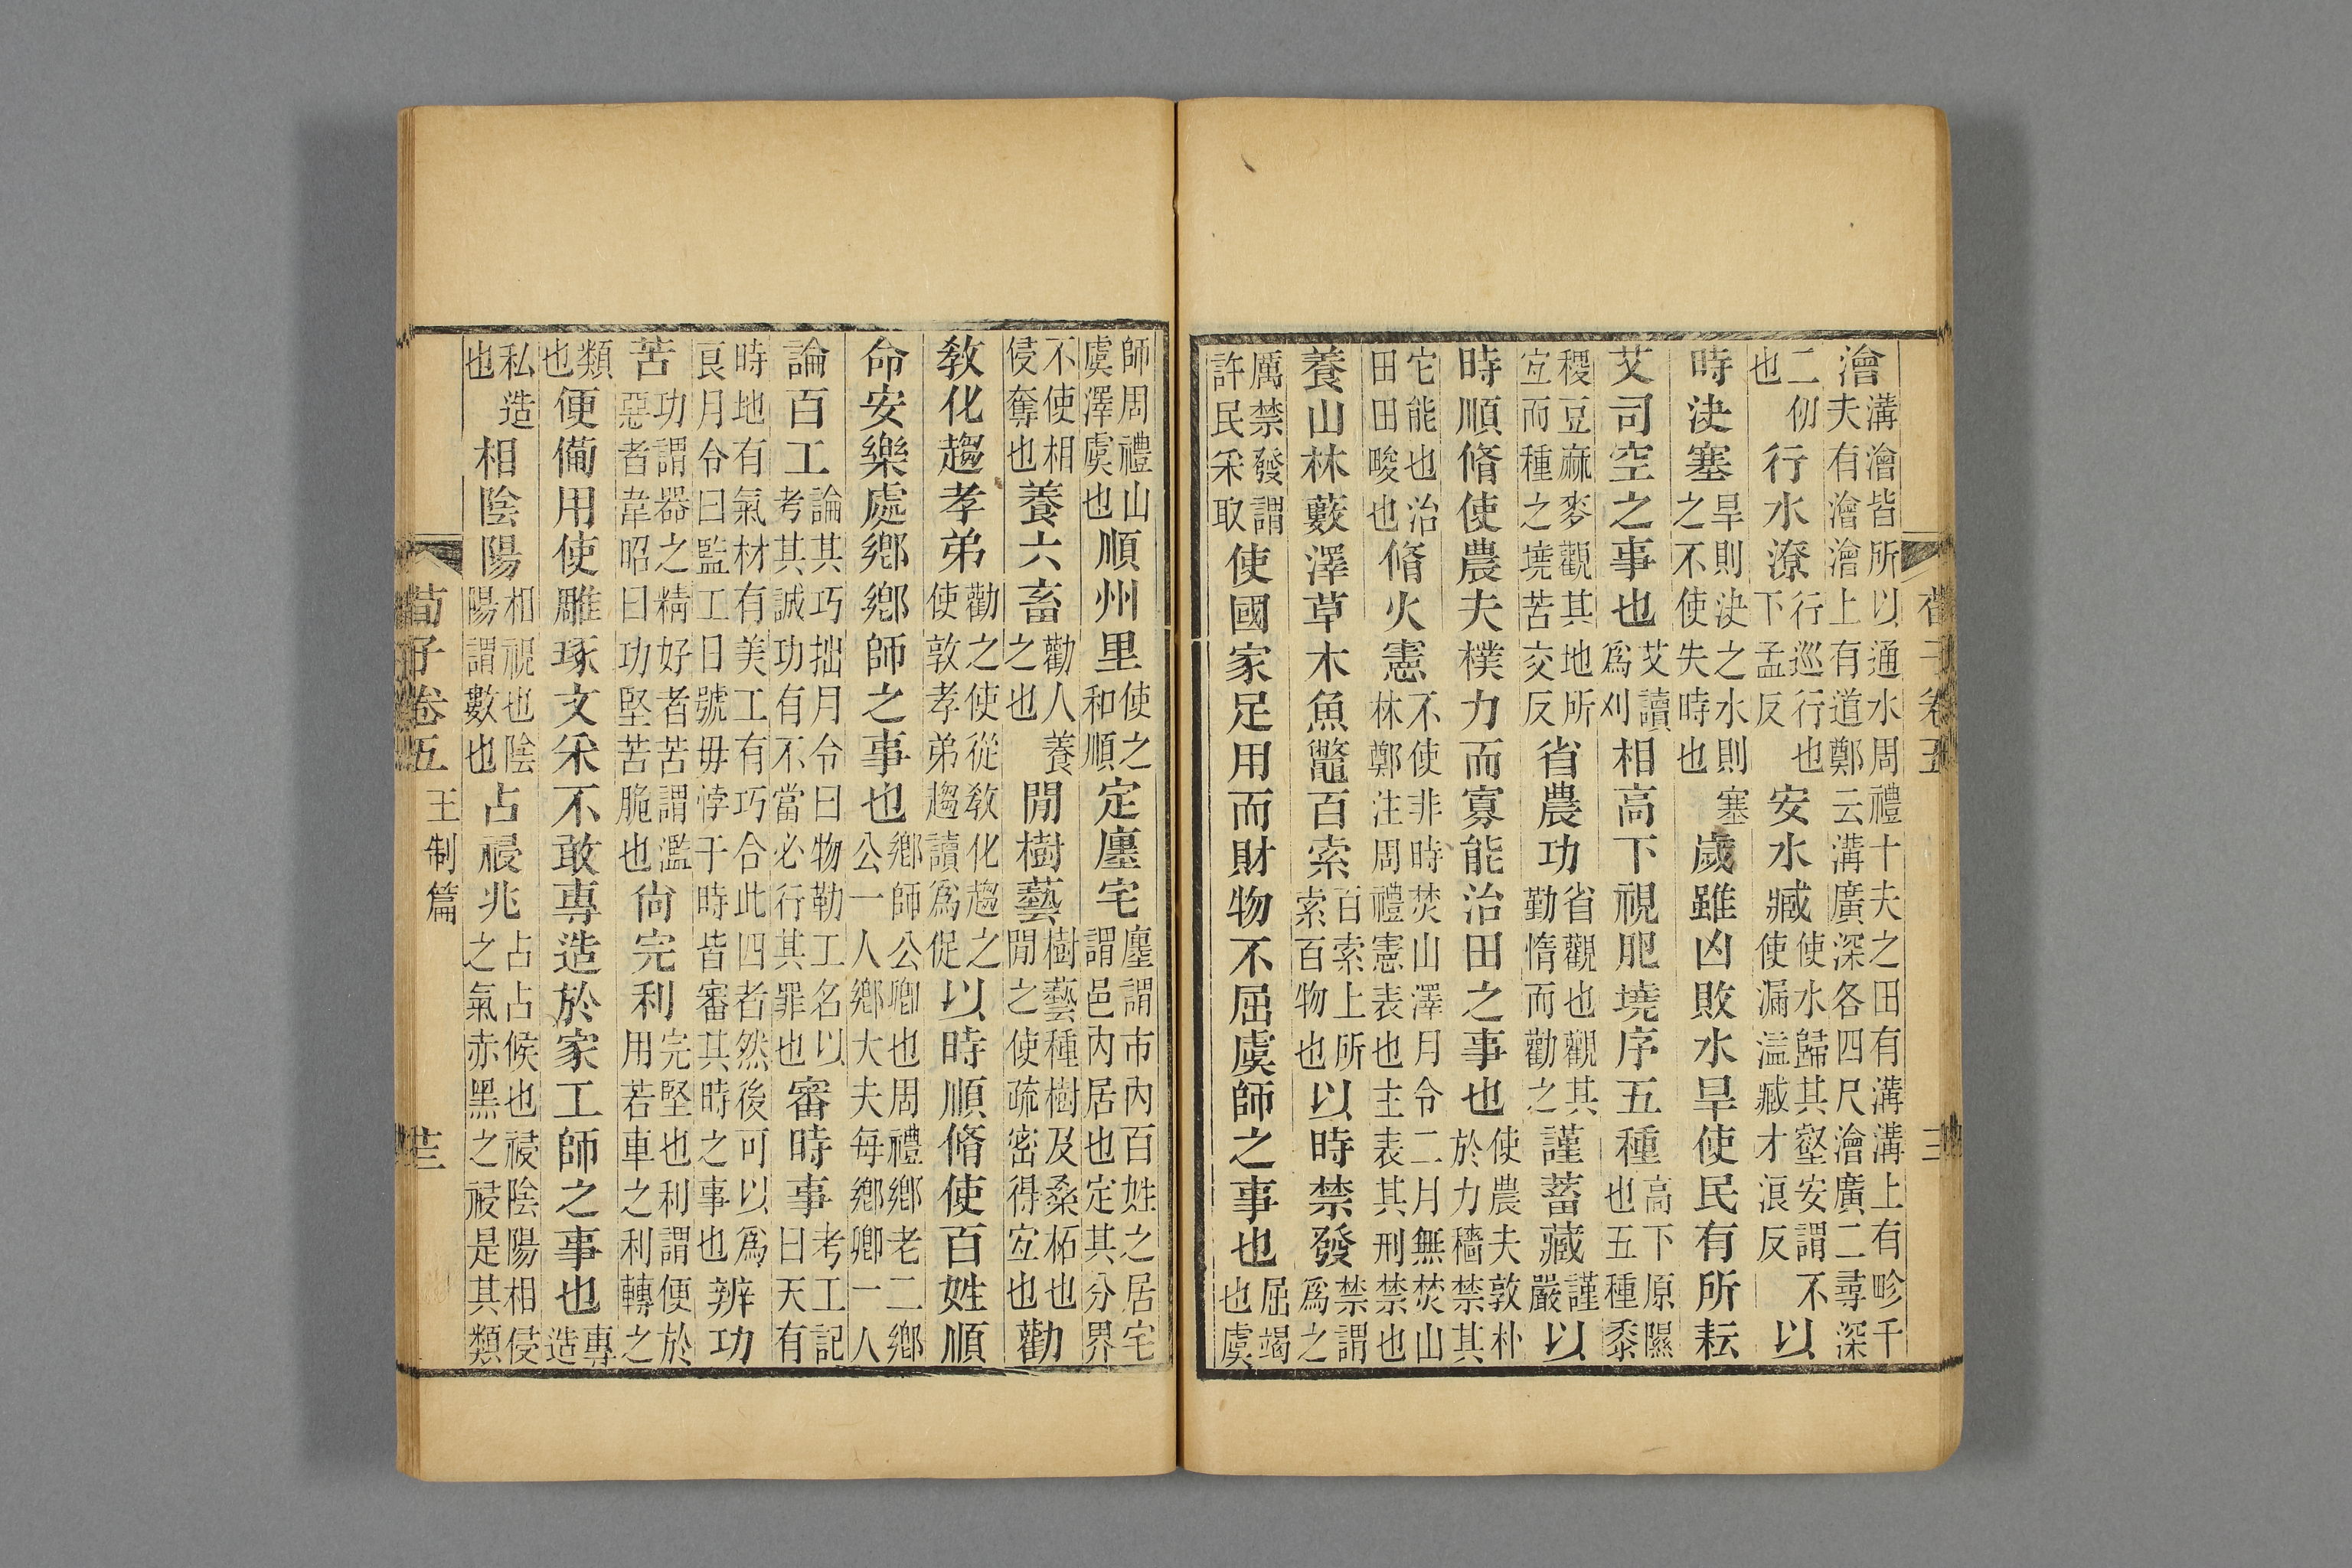 澮溝澮皆所以通水周禮十夫之田有溝溝上有畛千夫有澮澮上有道鄭云溝廣深各四尺澮廣二尋深
二仞也行水潦行巡行也下孟反安水臧使水歸其壑安謂不使漏溢臧才浪反以
時決塞旱則決之水則塞之不使失時也歲雖凶敗水旱使民有所耘
艾司空之事也艾讀爲刈相高下視肥墝序五種高下原隰也五種黍
稷豆麻麥觀其地所宐而種之墝苦交反省農功省觀也觀其勤惰而勸之謹蓄藏謹嚴以
時順脩使農夫樸力而寡能治田之事也使農夫敦朴於力穡禁其
它能也治田田畯也脩火憲不使非時焚山澤月令二月無焚山林鄭注周禮憲表也主表其刑禁也
養山林藪澤草木魚鼈百索百索上所索百物也以時禁發禁謂爲之
厲禁發謂許民采取使國家足用而財物不屈虞師之事也屈竭也虞
師周禮山虞澤虞也順州里使之和順定廛宅廛謂市內百姓之居宅謂邑內居也定其分界
不使相侵奪也養六畜勸人養之也閒樹藝樹藝種樹及桑柘也閒之使疏密得宐也勸
敎化趨孝弟勸之使從敎化趨之使敦孝弟趨讀爲促以時順脩使百姓順
命安樂處鄉鄉師之事也鄉師公卿也周禮鄉老二鄉公一人鄉大夫每鄉卿一人
論百工論其巧拙月令曰物勒工名以考其誠功有不當必行其罪也審時事考工記曰天有
時地有氣材有美工有巧合此四者然後可以爲良月令曰監工日號毋悖于時皆審其時之事也辨功
苦功謂器之精好者苦謂濫惡者韋昭曰功堅苦脆也尙完利完堅也利謂便於用若車之利轉之
類也便備用使雕琢文采不敢專造於家工師之事也專造
私造也相陰陽相視也陰陽謂數也占祲兆占占候也祲陰陽相侵之氣赤黑之祲是其類
荀子卷五 王制篇